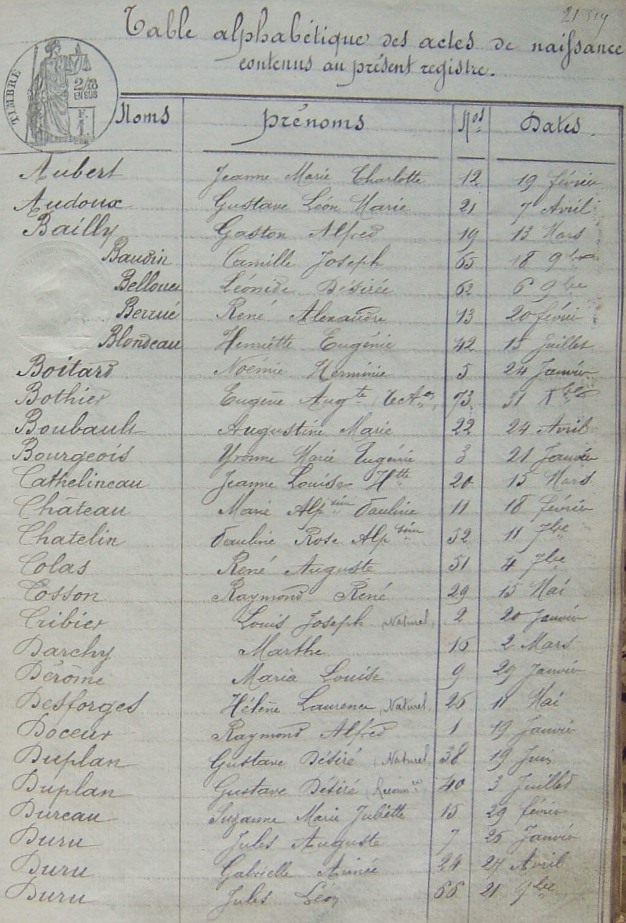 Table alphabétique des actes de naissance
contenus au présent registre.
TIMBRE 2/10 EN SUS
Noms Prénoms Nos Dates
Aubert Jeanne Marie Charlotte 12 19 février
Audoux Gustave Léon Marie 21 7 Avril
Bailly Gaston Alfred 19 13 Mars
Baudin Camille Joseph 65 18 9bre
Léonide Désirée 62 6 9bre
Berrué René Alexandre 13 20 févri
Blondeau Henriette Eugénie 42 15 Juillet
Boitard Noémie Herminie 5 24 Janvier
Bothier Eugène Augte 73 31
Boubault Augustine Marie 22 24 Avril
Bourgeois Yvonne Marie Eugénie 3 21 Janvier
Cathelineau Jeanne Louise Htte 20 15 Mars
Château Marie Alpsine Pauline 11 18 février
Chatelin Pauline Rose Alpsine 52 11 7bre
Colas René Auguste 51 4 7bre
Cosson Raymond René 29 15 Mai
Cribier Louis Joseph Naturel 2 20 Janvier
Darchy Marthe 16 2 Mars
Dérôme Maria Louise 9 29 Janvier
Desforges Hélène Laurence Naturel 26 11 Mai
Doceur Raymond Alfred 1 19 Janvier
Duplan Gustave Désiré Naturel 38 19 Juin
Duplan Gustave Désiré 40 3 Juillet
Dureau Suzanne Marie Juliette 15 29 février
Duru Jules Auguste 7 26 Janvier
Duru Gabrielle Aimée 24 27 Avril
Duru Jules Léon 66 21 9bre